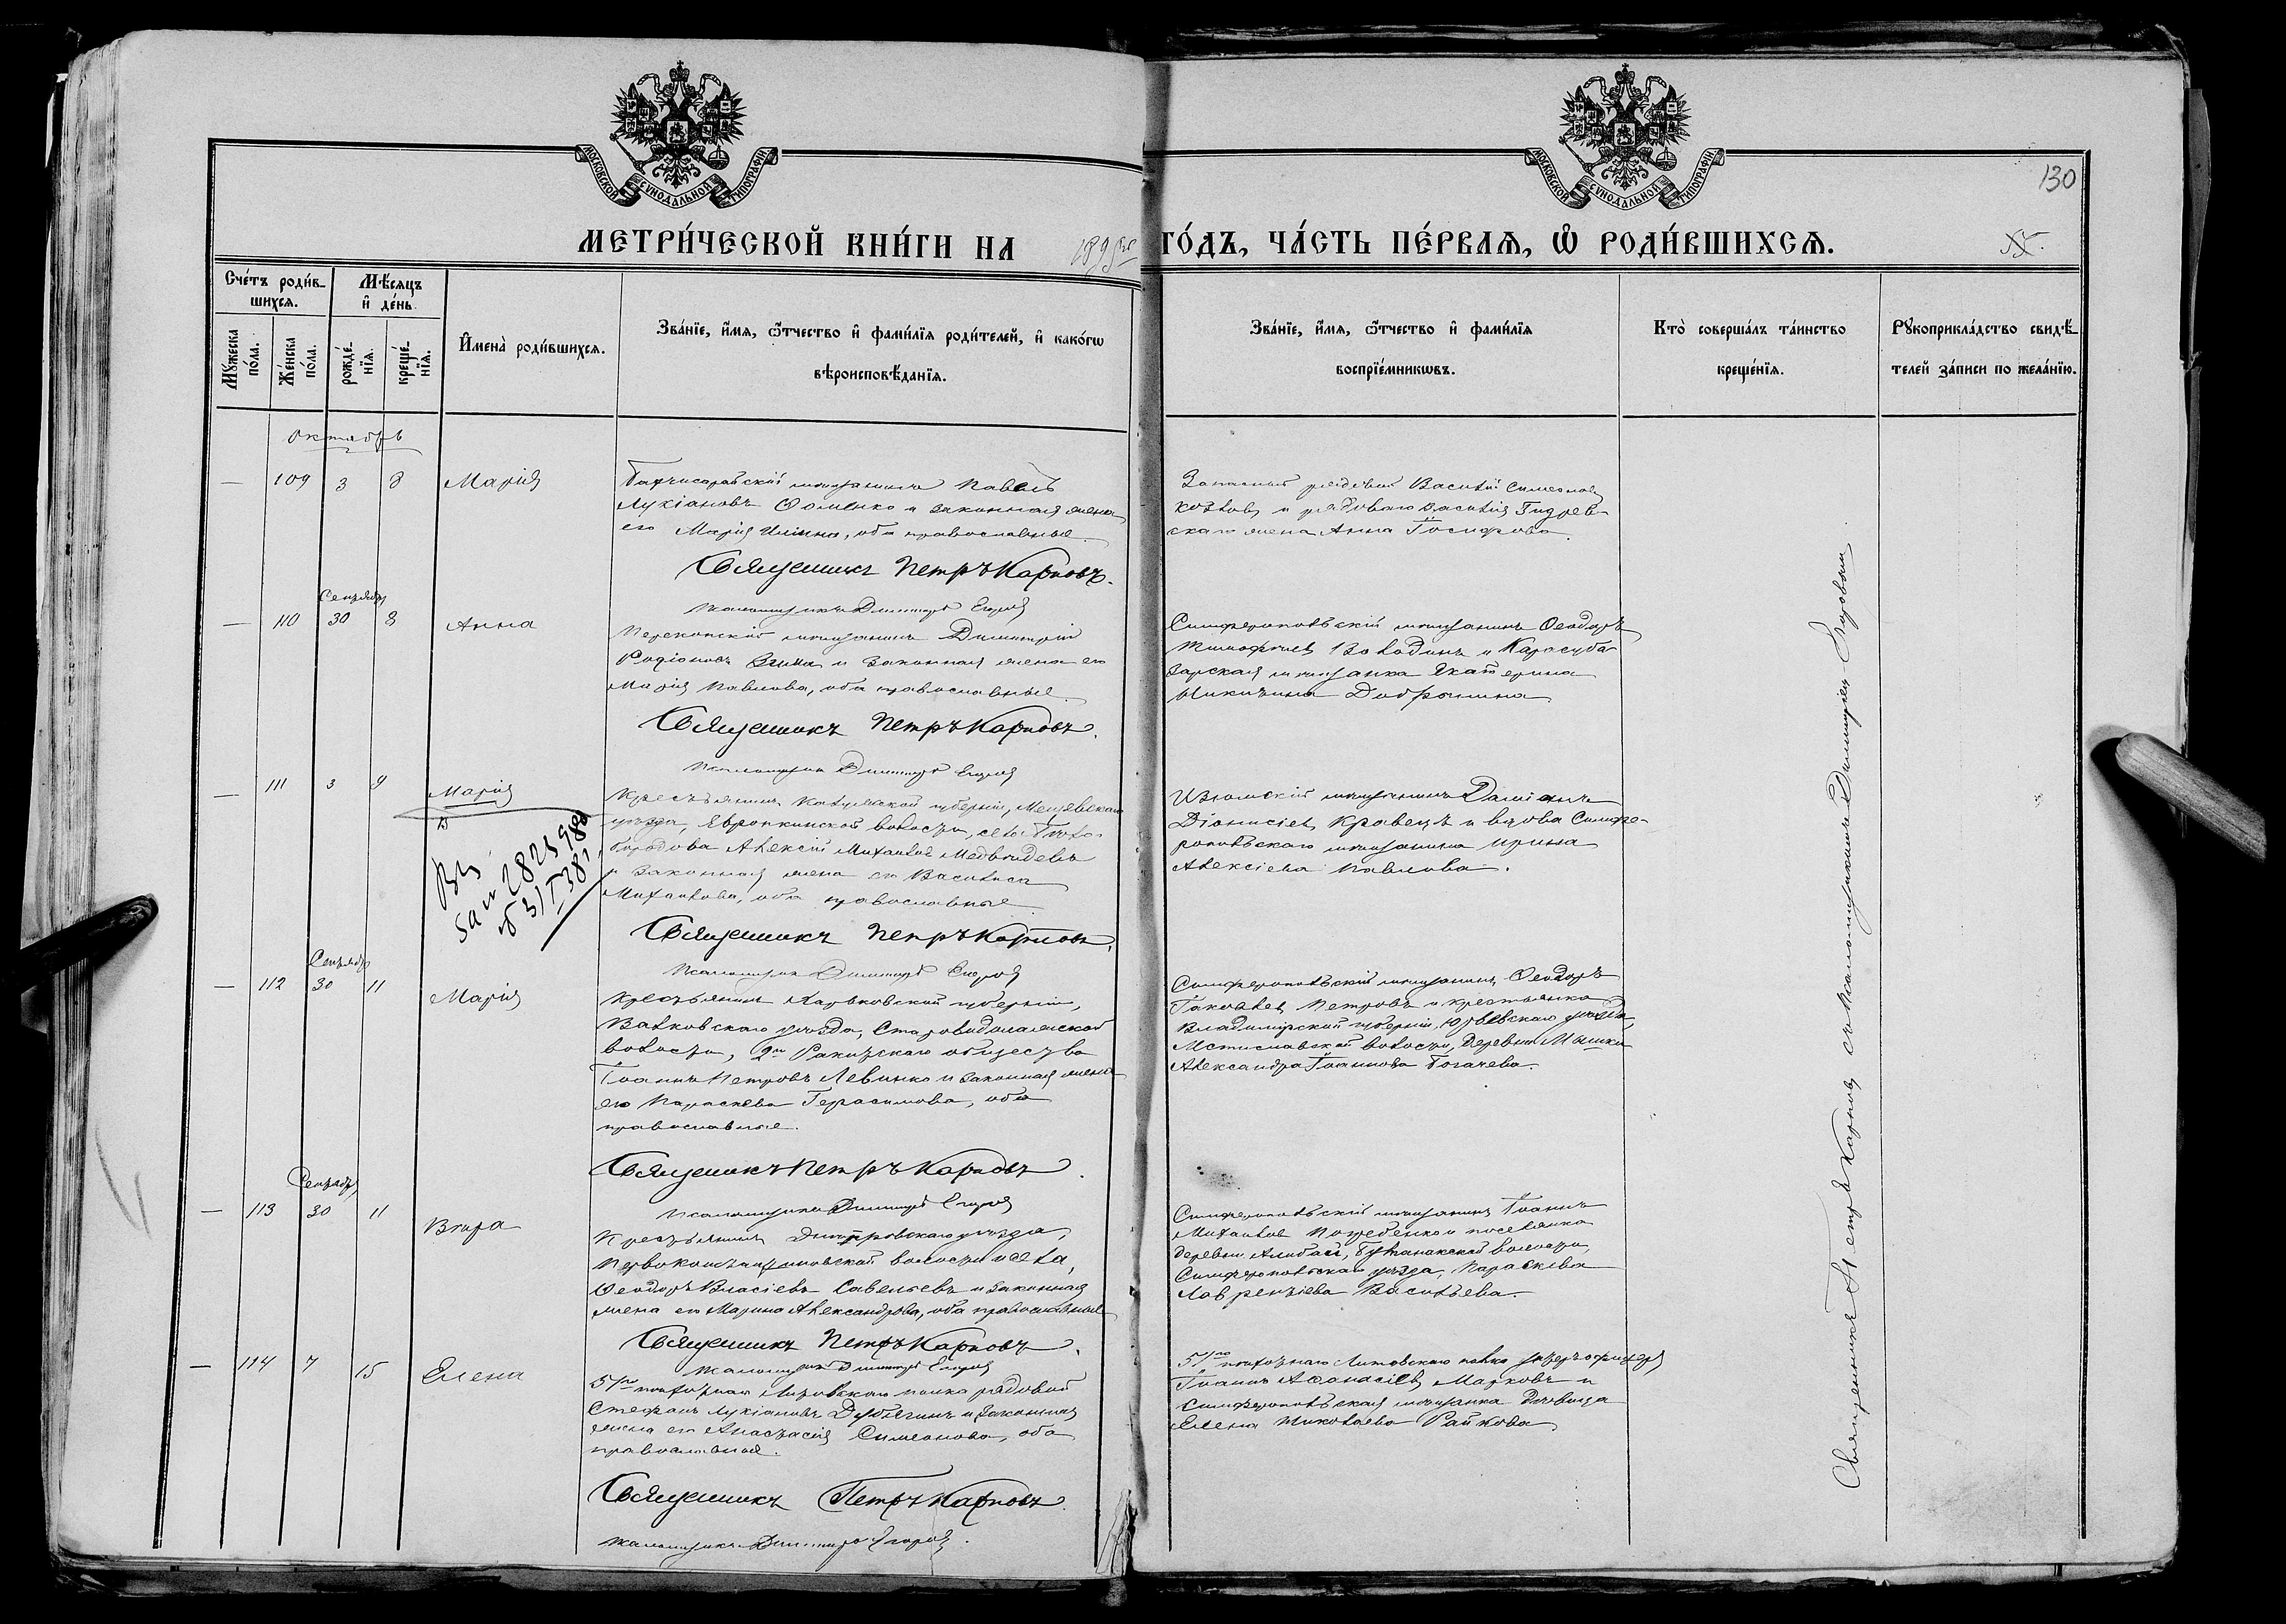 МОСКОВСКОЙ СУНОДАЛЬНОЙ ТИПОГРАФІИ
МОСКОВСКОЙ СУНОДАЛЬНОЙ ТИПОГРАФІИ
130
МЕТРИ́ЧЕСКОЙ КНИ́ГИ НА 1895 ГО́ДЪ, ЧА́СТЬ ПЕ́РВАЯ, Ѡ РОДИ́ВШИХСЯ.
Сче́тъ роди́в-
шихся.
Мѣ́сяцъ
и де́нь.
Мꙋ́жеска
по́ла.
Же́нска
по́ла.
рожде́-
нїя.
креще́-
нїя.
И҆мена̀ роди́вшихся.
Зва́нїе, и҆́мя, ѻ҆́тчество и҆ фами́лїя роди́телей, и҆ како́гѡ
вѣроисповѣ́данїя.
Зва́нїе, и҆́мя, ѻ҆́тчество и҆ фами́лїя
воспрїе́мникѡвъ.
Кто̀ соверша́лъ та́инство
креще́нїя.
Рꙋкоприкла́дство свидѣ́-
телей за́писи по жела́нїю.
Октябрь
— 109 3 8 Марія
Бахчисарайскій мѣщанинъ Павелъ
Лукіановъ Фоменко и законная жена
его Марія Ильина, оба православные.
Священникъ Петръ Карповъ.
Псаломщикъ Димитрій Егоровъ
Запасный рядовой Василій Симеоновъ
Козловъ и рядоваго Василія
скаго жена Анна Іосифова.
Сентября
— 110 30 8 Анна
Перекопскій мѣщанинъ Димитрій
Родіоновъ и законная жена его
Марія Павлова, оба православные.
Священникъ Петръ Карповъ.
Псаломщикъ Димитрій Егоровъ
Симферопольскій мѣщанинъ Ѳеодоръ
Тимофеевъ Володинъ и Карасуба-
зарская мѣщанка Екатерина
Никитина Добрынина.
— 111 3 9 Марія
Крестьянинъ Калужской губерніи, Мещевскаго
уѣзда, волости, села
Алексій Михаиловъ Медвѣдевъ
и законная жена его Василиса
Михаилова, оба православные.
Священникъ Петръ Карповъ.
Псаломщикъ Димитрій Егоровъ
Изюмскій мѣщанинъ Даміанъ
Діонисіевъ Кравецъ и вдова Симфе-
ропольскаго мѣщанина Ирина
Алексіева Павлова.
Сентября
— 112 30 11 Марія
Крестьянинъ Харьковской губерніи,
Валковскаго уѣзда, Староводолажской
волости, 2го Ракитскаго общества
Іоаннъ Петровъ Левинко и законная жена
его Параскева Герасимова, оба
православные.
Священникъ Петръ Карповъ.
Псаломщикъ Димитрій Егоровъ
Симферопольскій мѣщанинъ Ѳеодоръ
Іаковлевъ Петровъ и крестьянка
Владимірской губерніи, Юрьевскаго уѣзда,
Мстиславской волости, деревни Мышки
Александра Іоаннова Богачева.
Сентября
— 113 30 11 Вѣра
Крестьянинъ Днѣпровскаго уѣзда,
Первоконстантиновской волости и села,
Ѳеодоръ Власіевъ Савельевъ и законная
жена его Марина Александрова, оба православные.
Священникъ Петръ Карповъ.
Псаломщикъ Димитрій Егоровъ
Симферопольскій мѣщанинъ Іоаннъ
Михаиловъ и поселянка
деревни волости,
Симферопольскаго уѣзда, Параскева
Лаврентіева Васильева.
— 114 7 15 Елена
51го пѣхотнаго Литовскаго полка рядовой
Стефанъ Лукіановъ и законная
жена его Анастасія Симеонова, оба
православные.
Священникъ Петръ Карповъ.
Псаломщикъ Димитрій Егоровъ.
51го пѣхотнаго Литовскаго полка унтеръ-офицеръ
Іоаннъ Аѳанасіевъ Марковъ и
симферопольская мѣщанка дѣвица
Елена Николаева Райкова.
Священникъ Петръ Карповъ съ псаломщикомъ Димитріемъ Егоровымъ